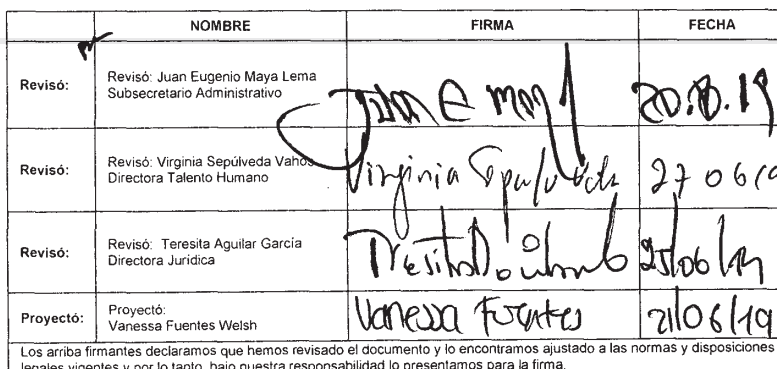 NOMBRE FIRMA FECHA
Revisó: Revisó: Juan Eugenio Maya Lema
Subsecretario Administrativo
Revisó: Revisó: Virginia Sepúlveda Vahos Virginia 27 06 19
Directora Talento Humano
Revisó: Revisó: Teresita Aguilar García 25/06/19
Directora Jurídica
Proyectó: Proyectó: Vanessa Fuentes 21/06/19
Vanessa Fuentes Welsh
Los arriba firmantes declaramos que hemos revisado el documento y lo encontramos ajustado a las normas y disposiciones
legales vigentes y por lo tanto, bajo nuestra responsabilidad lo presentamos para la firma.